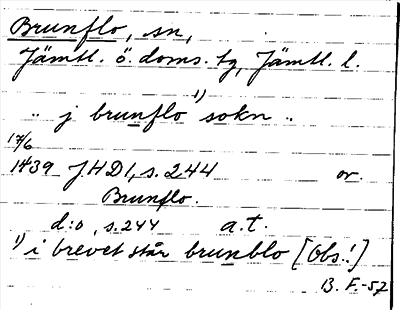 Brunflo, sn,
Jämtl. ö. doms. tg, Jämtl. l.
" j brunflo 1) sokn "
17/6
1439 JHD1, s. 244 or.
Brunflo.
d:o, s. 244 a.t.
1) i brevet står brunblo [Obs.!]
B. F.-57